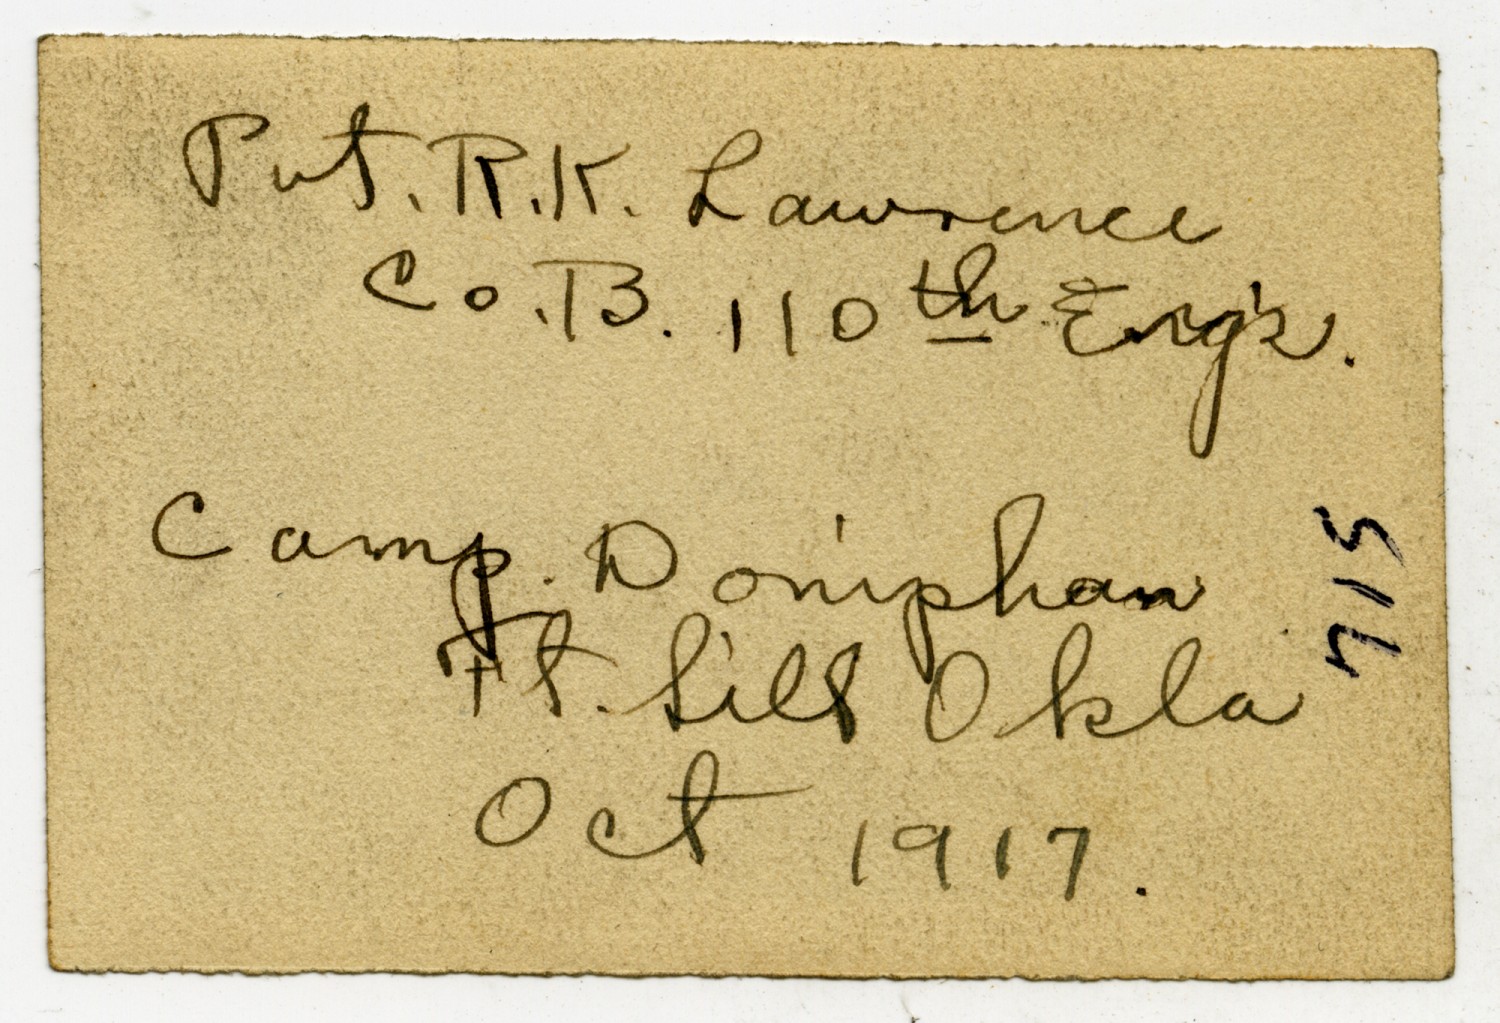 Pvt. R.K. Lawrence
Co. B. 110th Eng's.
Camp. Doniphan
Ft. Sill Okla
Oct 1917.
715